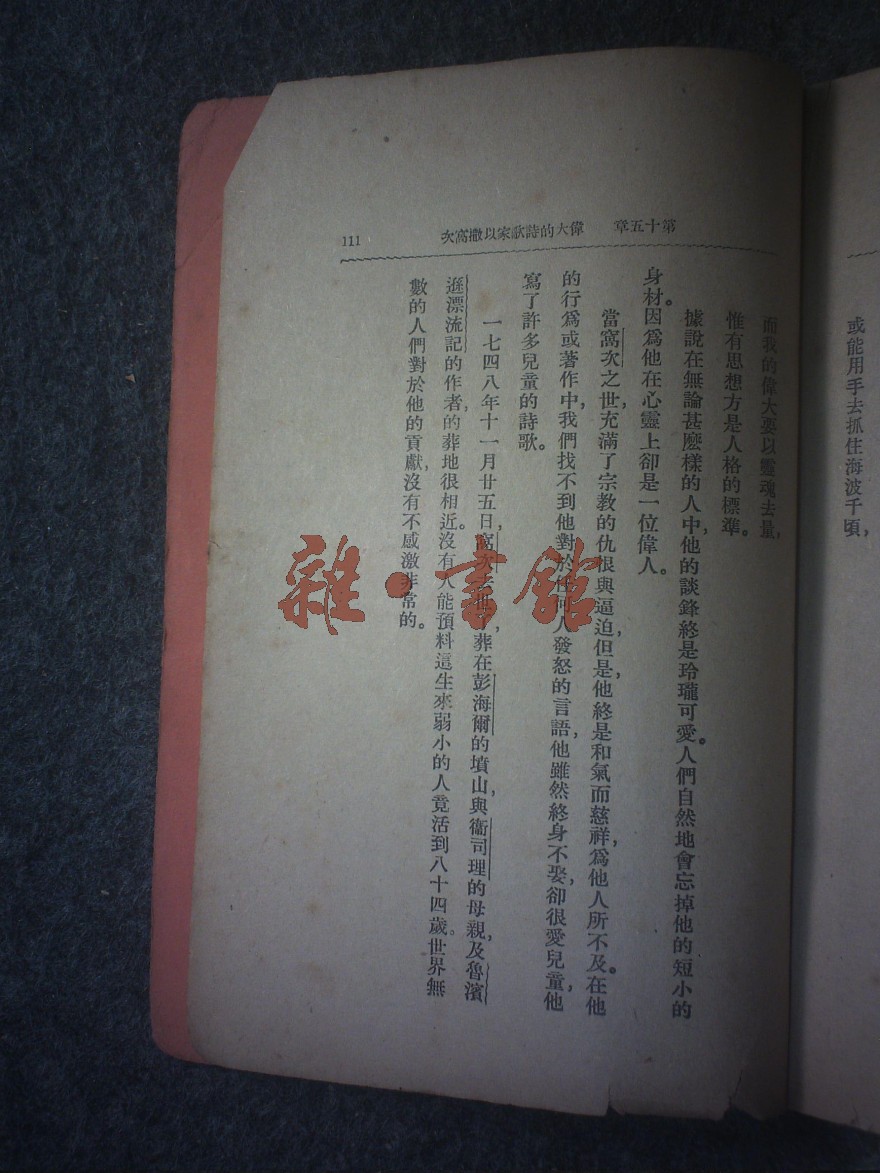 或能用手去抓住海波千頃，
第十五章　偉大的詩歌家以撒窩次
111
而我的偉大要以靈魂去量，
惟有思想方是人格的標準。
據說在無論甚麼樣的人中，他的談鋒終是玲瓏可愛。人們自然地會忘掉他的短小的
身材。因爲他在心靈上卻是一位偉人。
當窩次之世，充滿了宗教的仇恨與逼迫，但是，他終是和氣而慈祥，爲他人所不及。在他
的行爲或著作中，我們找不到他對於任何人發怒的言語，他雖然終身不娶，卻很愛兒童，他
寫了許多兒童的詩歌。
一七四八年十一月廿五日，窩次去世，葬在彭海爾的墳山，與衞司理的母親，及魯濱
遜漂流記的作者，的葬地很相近。沒有人能預料這生來弱小的人竟活到八十四歲。世界無
數的人們對於他的貢獻，沒有不感激非常的。
雜·書館